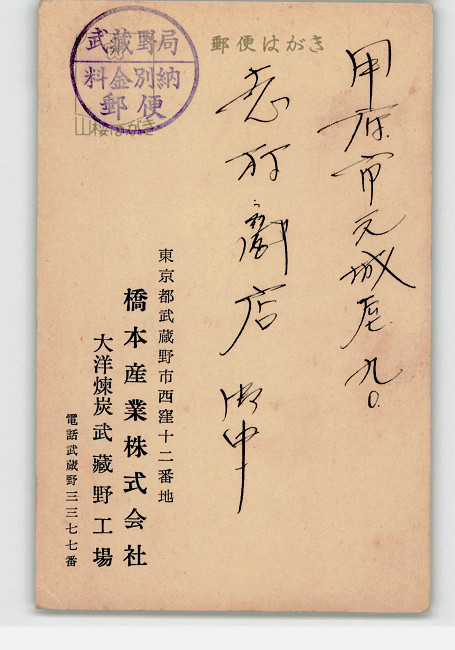 郵便はがき
武蔵野局
料金別納
郵便
甲府市元城屋町九〇
商店 御中
東京都武蔵野市西窪十二番地
橋本産業株式会社
大洋煉炭武蔵野工場
電話武蔵野三三七七番